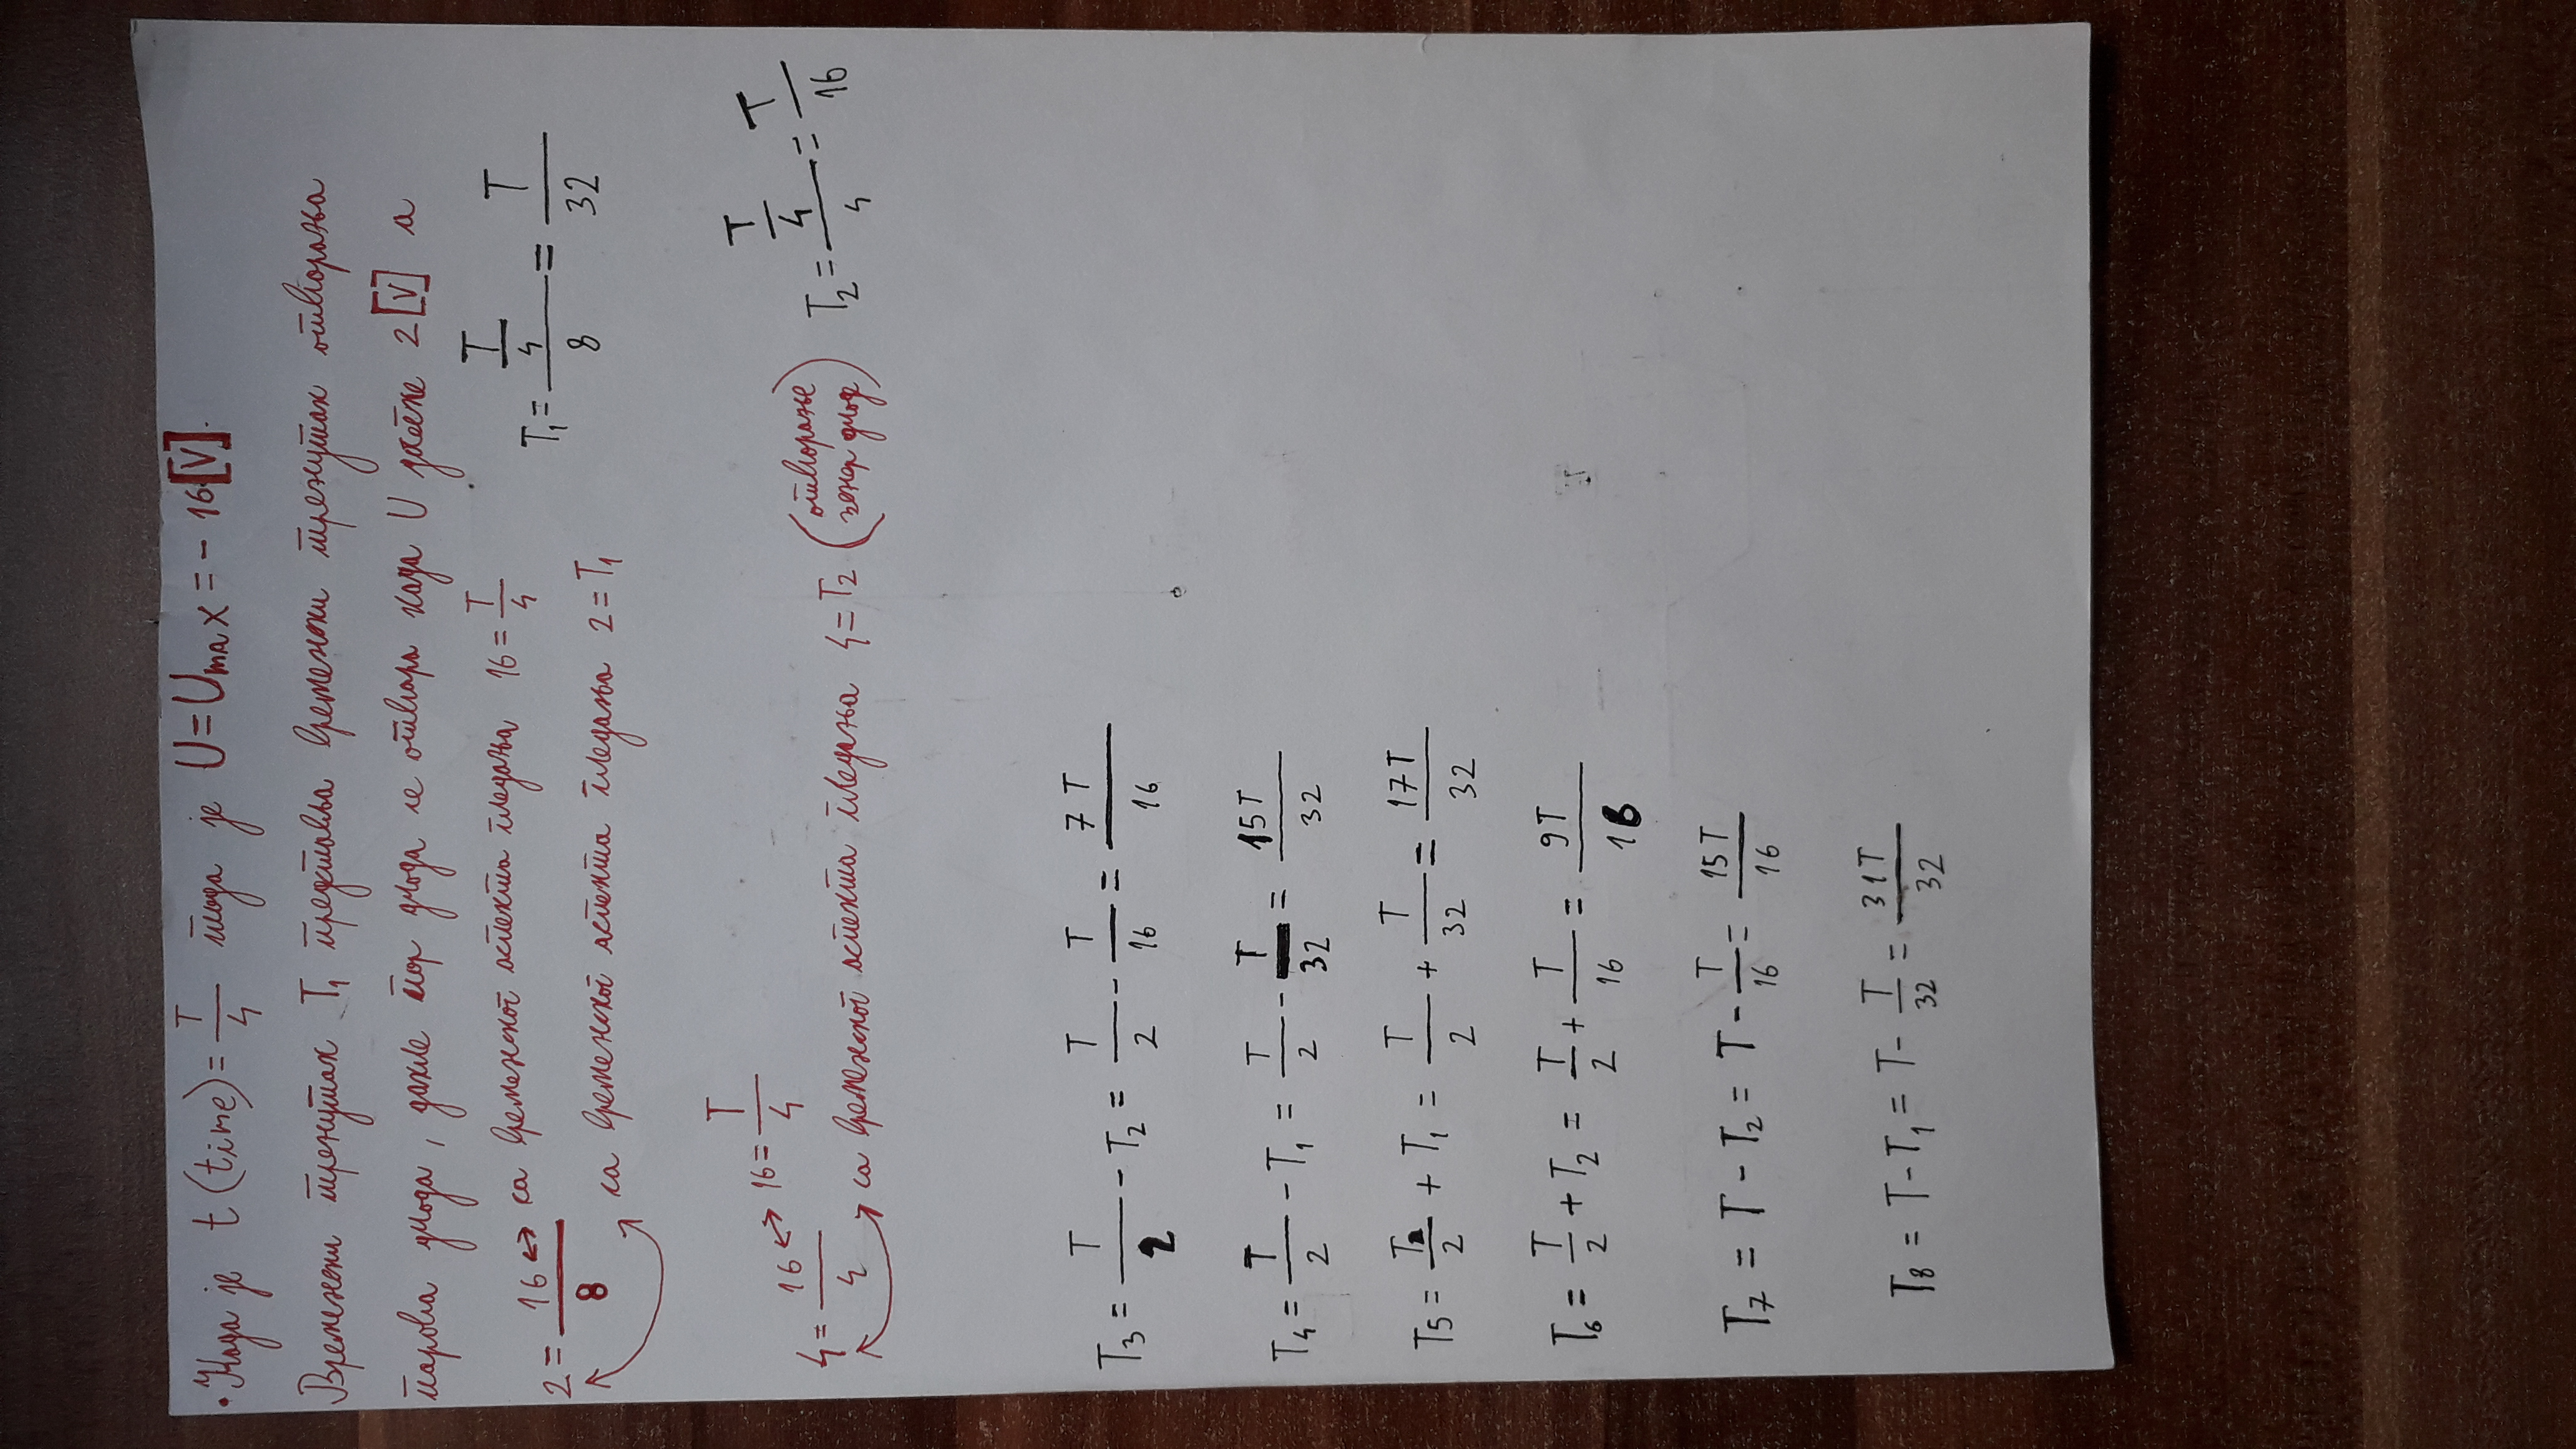 • Када је t (time) = T/4 тада је U = Umax = - 16 [V].
Временски тренутак T₁ представља временски тренутак отварања
парова диода, дакле пар диода се отвара када U достигне 2 [V] а
2 = 16/8 ↔ са временског аспекта гледања 16 = T/4
са временског аспекта гледања 2 = T₁
T₁ = (T/4)/8 = T/32
4 = 16/4 ↔ 16 = T/4
са временског аспекта гледања 4 = T₂ (отварање зенер диоде)
T₂ = (T/4)/4 = T/16
T₃ = T/2 - T₂ = T/2 - T/16 = 7T/16
T₄ = T/2 - T₁ = T/2 - T/32 = 15T/32
T₅ = T/2 + T₁ = T/2 + T/32 = 17T/32
T₆ = T/2 + T₂ = T/2 + T/16 = 9T/16
T₇ = T - T₂ = T - T/16 = 15T/16
T₈ = T - T₁ = T - T/32 = 31T/32